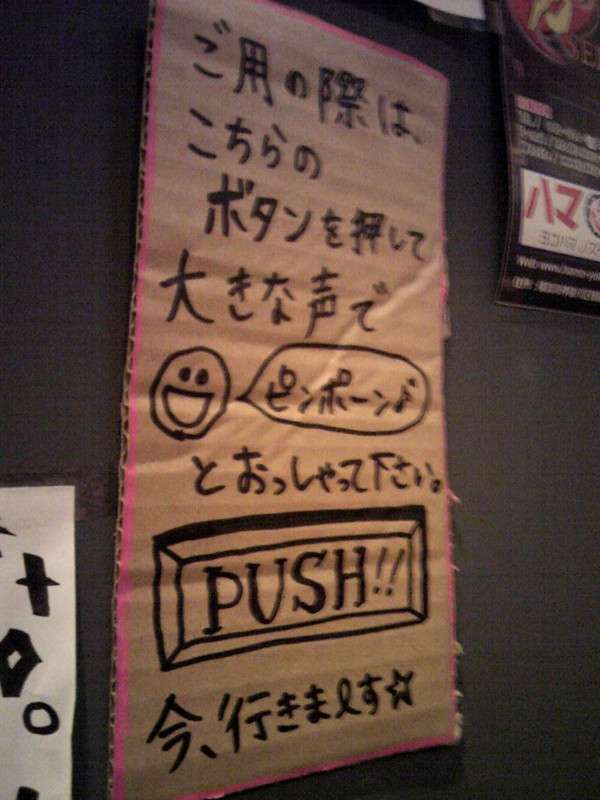 ご用の際は、
こちらの
ボタンを押して
大きな声で
ピンポーン♪
とおっしゃって下さい。
PUSH!!
今、行きまぁす☆
ハマ